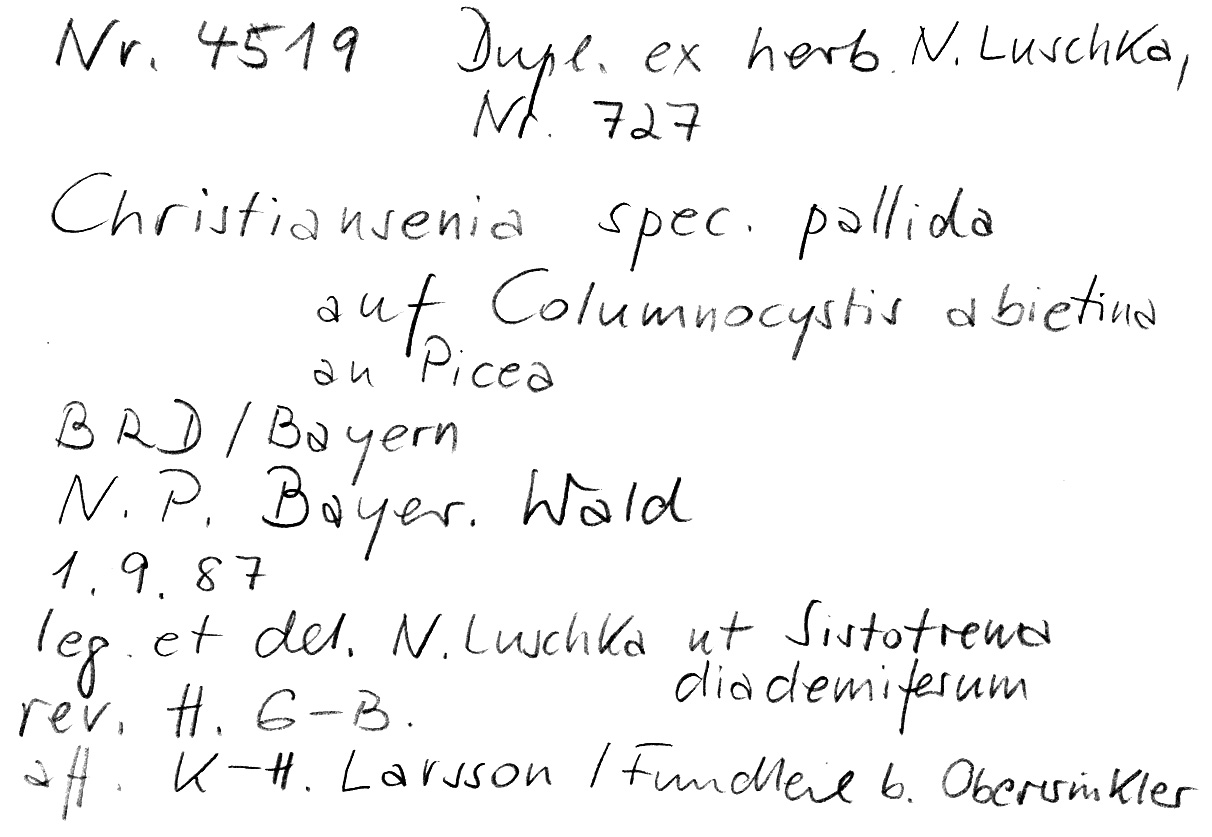 Nr. 4519 Dupl. ex herb. N. Luschka,
Nr. 727
Christiansenia spec. pallida
auf Columnocystis abietina
an Picea
BRD / Bayern
N. P. Bayer. Wald
1. 9. 87
leg. et det. N. Luschka ut Sistotrema
diademiferum
rev. H. G-B.
aff. K-H. Larsson / b. Oberwinkler